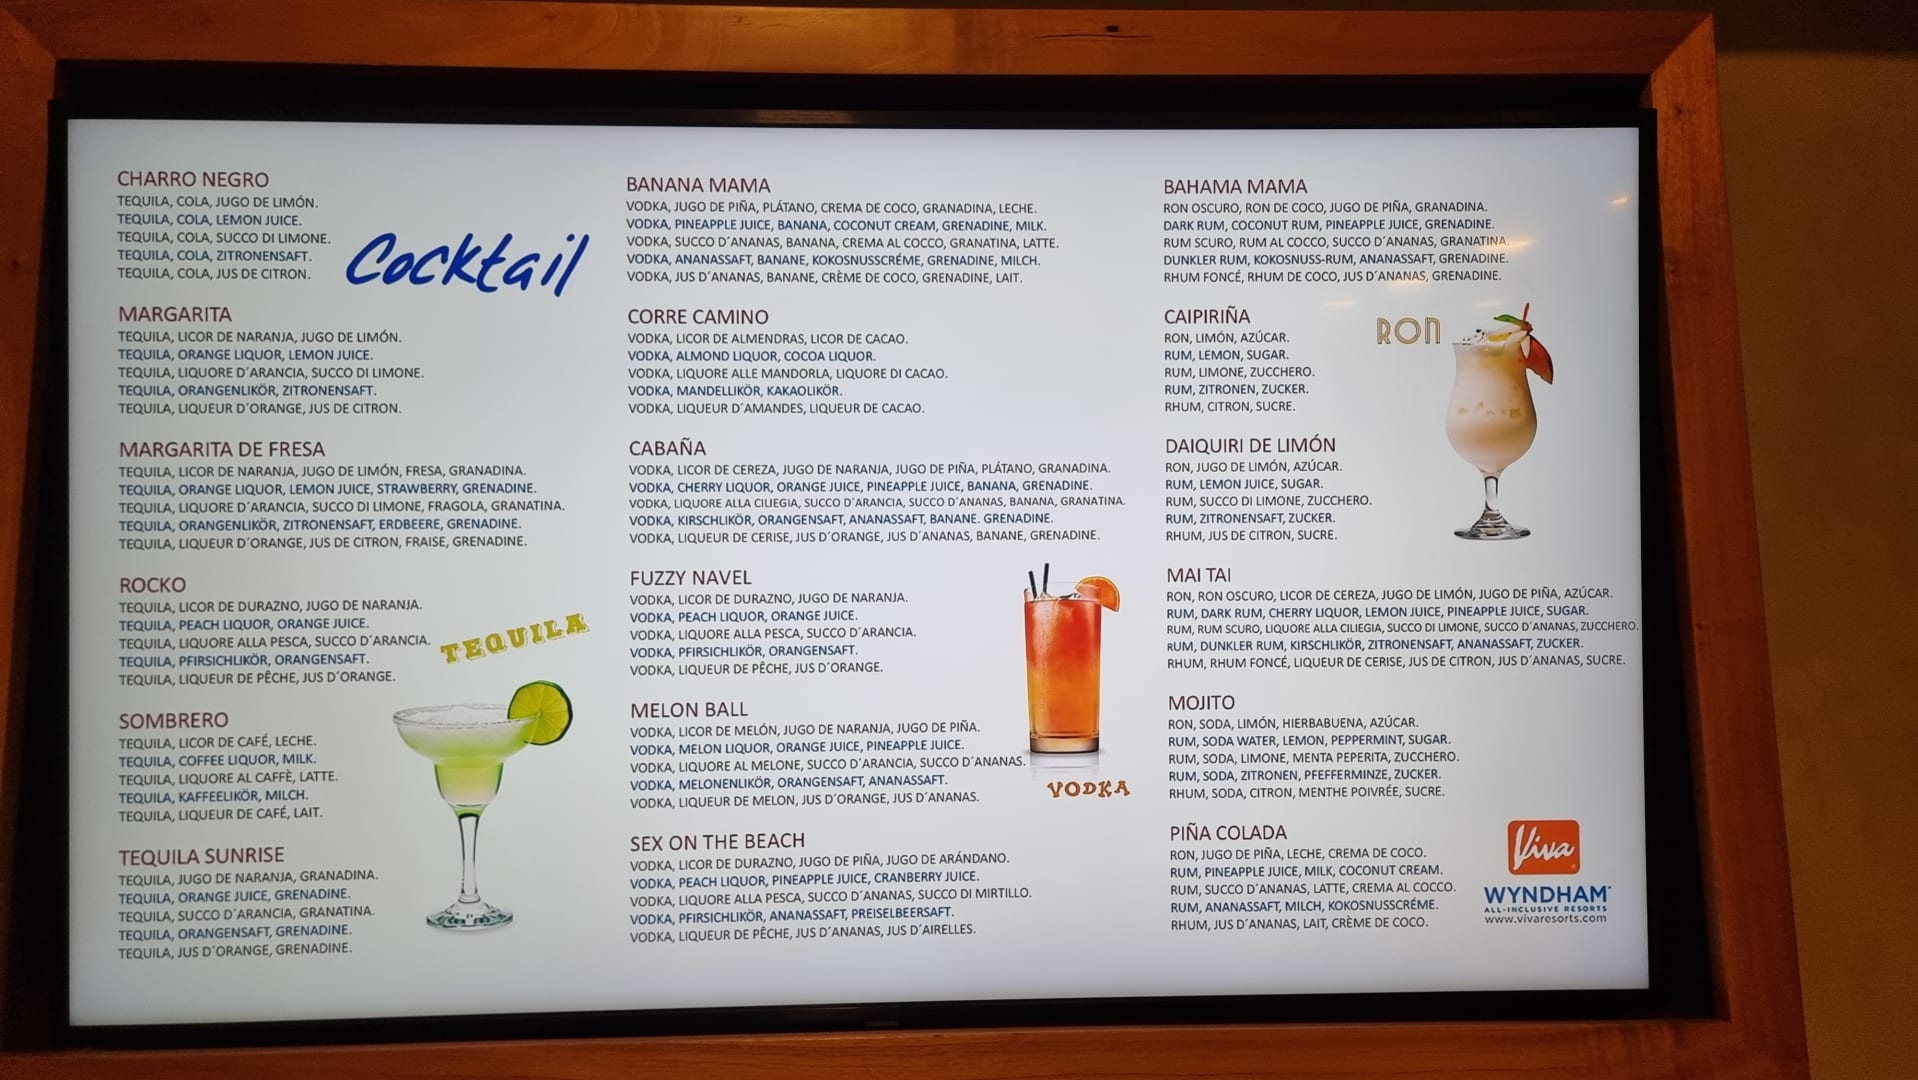 Cocktail
CHARRO NEGRO
TEQUILA, COLA, JUGO DE LIMÓN.
TEQUILA, COLA, LEMON JUICE.
TEQUILA, COLA, SUCCO DI LIMONE.
TEQUILA, COLA, ZITRONENSAFT.
TEQUILA, COLA, JUS DE CITRON.
MARGARITA
TEQUILA, LICOR DE NARANJA, JUGO DE LIMÓN.
TEQUILA, ORANGE LIQUOR, LEMON JUICE.
TEQUILA, LIQUORE D´ARANCIA, SUCCO DI LIMONE.
TEQUILA, ORANGENLIKÖR, ZITRONENSAFT.
TEQUILA, LIQUEUR D´ORANGE, JUS DE CITRON.
MARGARITA DE FRESA
TEQUILA, LICOR DE NARANJA, JUGO DE LIMÓN, FRESA, GRANADINA.
TEQUILA, ORANGE LIQUOR, LEMON JUICE, STRAWBERRY, GRENADINE.
TEQUILA, LIQUORE D´ARANCIA, SUCCO DI LIMONE, FRAGOLA, GRANATINA.
TEQUILA, ORANGENLIKÖR, ZITRONENSAFT, ERDBEERE, GRENADINE.
TEQUILA, LIQUEUR D´ORANGE, JUS DE CITRON, FRAISE, GRENADINE.
ROCKO
TEQUILA, LICOR DE DURAZNO, JUGO DE NARANJA.
TEQUILA, PEACH LIQUOR, ORANGE JUICE.
TEQUILA, LIQUORE ALLA PESCA, SUCCO D´ARANCIA.
TEQUILA, PFIRSICHLIKÖR, ORANGENSAFT.
TEQUILA, LIQUEUR DE PÊCHE, JUS D´ORANGE.
TEQUILA
SOMBRERO
TEQUILA, LICOR DE CAFÉ, LECHE.
TEQUILA, COFFEE LIQUOR, MILK.
TEQUILA, LIQUORE AL CAFFÈ, LATTE.
TEQUILA, KAFFEELIKÖR, MILCH.
TEQUILA, LIQUEUR DE CAFÉ, LAIT.
TEQUILA SUNRISE
TEQUILA, JUGO DE NARANJA, GRANADINA.
TEQUILA, ORANGE JUICE, GRENADINE.
TEQUILA, SUCCO D´ARANCIA, GRANATINA.
TEQUILA, ORANGENSAFT, GRENADINE.
TEQUILA, JUS D´ORANGE, GRENADINE.
BANANA MAMA
VODKA, JUGO DE PIÑA, PLÁTANO, CREMA DE COCO, GRANADINA, LECHE.
VODKA, PINEAPPLE JUICE, BANANA, COCONUT CREAM, GRENADINE, MILK.
VODKA, SUCCO D´ANANAS, BANANA, CREMA AL COCCO, GRANATINA, LATTE.
VODKA, ANANASSAFT, BANANE, KOKOSNUSSCRÉME, GRENADINE, MILCH.
VODKA, JUS D´ANANAS, BANANE, CRÈME DE COCO, GRENADINE, LAIT.
CORRE CAMINO
VODKA, LICOR DE ALMENDRAS, LICOR DE CACAO.
VODKA, ALMOND LIQUOR, COCOA LIQUOR.
VODKA, LIQUORE ALLE MANDORLA, LIQUORE DI CACAO.
VODKA, MANDELLIKÖR, KAKAOLIKÖR.
VODKA, LIQUEUR D´AMANDES, LIQUEUR DE CACAO.
CABAÑA
VODKA, LICOR DE CEREZA, JUGO DE NARANJA, JUGO DE PIÑA, PLÁTANO, GRANADINA.
VODKA, CHERRY LIQUOR, ORANGE JUICE, PINEAPPLE JUICE, BANANA, GRENADINE.
VODKA, LIQUORE ALLA CILIEGIA, SUCCO D´ARANCIA, SUCCO D´ANANAS, BANANA, GRANATINA.
VODKA, KIRSCHLIKÖR, ORANGENSAFT, ANANASSAFT, BANANE. GRENADINE.
VODKA, LIQUEUR DE CERISE, JUS D´ORANGE, JUS D´ANANAS, BANANE, GRENADINE.
FUZZY NAVEL
VODKA, LICOR DE DURAZNO, JUGO DE NARANJA.
VODKA, PEACH LIQUOR, ORANGE JUICE.
VODKA, LIQUORE ALLA PESCA, SUCCO D´ARANCIA.
VODKA, PFIRSICHLIKÖR, ORANGENSAFT.
VODKA, LIQUEUR DE PÊCHE, JUS D´ORANGE.
MELON BALL
VODKA, LICOR DE MELÓN, JUGO DE NARANJA, JUGO DE PIÑA.
VODKA, MELON LIQUOR, ORANGE JUICE, PINEAPPLE JUICE.
VODKA, LIQUORE AL MELONE, SUCCO D´ARANCIA, SUCCO D´ANANAS.
VODKA, MELONENLIKÖR, ORANGENSAFT, ANANASSAFT.
VODKA, LIQUEUR DE MELON, JUS D´ORANGE, JUS D´ANANAS.
VODKA
SEX ON THE BEACH
VODKA, LICOR DE DURAZNO, JUGO DE PIÑA, JUGO DE ARÁNDANO.
VODKA, PEACH LIQUOR, PINEAPPLE JUICE, CRANBERRY JUICE.
VODKA, LIQUORE ALLA PESCA, SUCCO D´ANANAS, SUCCO DI MIRTILLO.
VODKA, PFIRSICHLIKÖR, ANANASSAFT, PREISELBEERSAFT.
VODKA, LIQUEUR DE PÊCHE, JUS D´ANANAS, JUS D´AIRELLES.
BAHAMA MAMA
RON OSCURO, RON DE COCO, JUGO DE PIÑA, GRANADINA.
DARK RUM, COCONUT RUM, PINEAPPLE JUICE, GRENADINE.
RUM SCURO, RUM AL COCCO, SUCCO D´ANANAS, GRANATINA.
DUNKLER RUM, KOKOSNUSS-RUM, ANANASSAFT, GRENADINE.
RHUM FONCÉ, RHUM DE COCO, JUS D´ANANAS, GRENADINE.
CAIPIRIÑA
RON, LIMÓN, AZÚCAR.
RUM, LEMON, SUGAR.
RUM, LIMONE, ZUCCHERO.
RUM, ZITRONEN, ZUCKER.
RHUM, CITRON, SUCRE.
RON
DAIQUIRI DE LIMÓN
RON, JUGO DE LIMÓN, AZÚCAR.
RUM, LEMON JUICE, SUGAR.
RUM, SUCCO DI LIMONE, ZUCCHERO.
RUM, ZITRONENSAFT, ZUCKER.
RHUM, JUS DE CITRON, SUCRE.
MAI TAI
RON, RON OSCURO, LICOR DE CEREZA, JUGO DE LIMÓN, JUGO DE PIÑA, AZÚCAR.
RUM, DARK RUM, CHERRY LIQUOR, LEMON JUICE, PINEAPPLE JUICE, SUGAR.
RUM, RUM SCURO, LIQUORE ALLA CILIEGIA, SUCCO DI LIMONE, SUCCO D´ANANAS, ZUCCHERO.
RUM, DUNKLER RUM, KIRSCHLIKÖR, ZITRONENSAFT, ANANASSAFT, ZUCKER.
RHUM, RHUM FONCÉ, LIQUEUR DE CERISE, JUS DE CITRON, JUS D´ANANAS, SUCRE.
MOJITO
RON, SODA, LIMÓN, HIERBABUENA, AZÚCAR.
RUM, SODA WATER, LEMON, PEPPERMINT, SUGAR.
RUM, SODA, LIMONE, MENTA PEPERITA, ZUCCHERO.
RUM, SODA, ZITRONEN, PFEFFERMINZE, ZUCKER.
RHUM, SODA, CITRON, MENTHE POIVRÉE, SUCRE.
PIÑA COLADA
RON, JUGO DE PIÑA, LECHE, CREMA DE COCO.
RUM, PINEAPPLE JUICE, MILK, COCONUT CREAM.
RUM, SUCCO D´ANANAS, LATTE, CREMA AL COCCO.
RUM, ANANASSAFT, MILCH, KOKOSNUSSCRÉME.
RHUM, JUS D´ANANAS, LAIT, CRÈME DE COCO.
Viva
WYNDHAM
ALL-INCLUSIVE RESORTS
www.vivaresorts.com
SAMSUNG